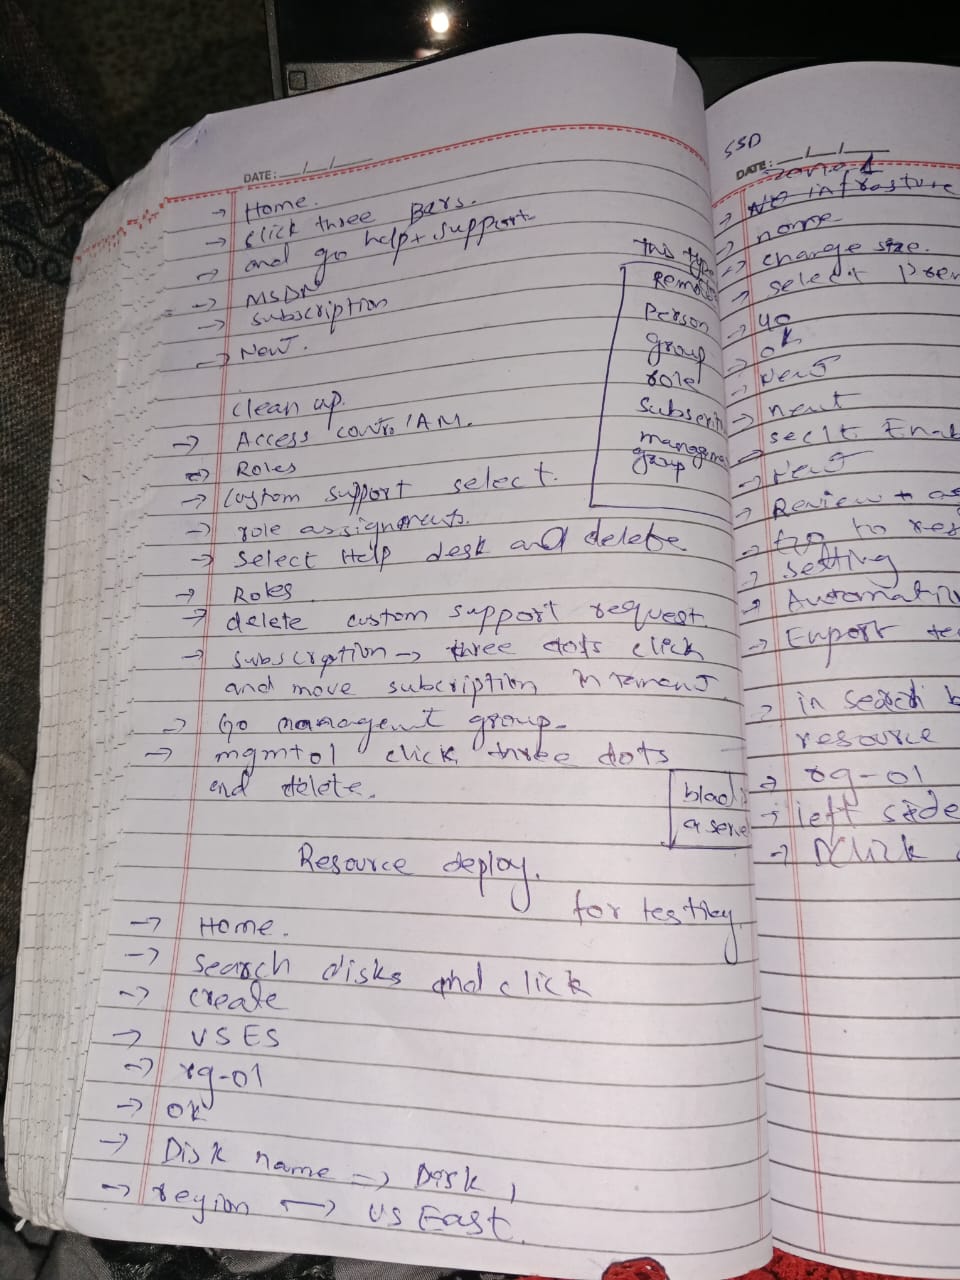 DATE: __/__/__
→ Home.
→ click three Bars.
→ and go help + support
→ MSDN
→ subscription
→ Next.
clean up.
→ Access control IAM.
→ Roles
→ Custom support select.
→ role assignments.
→ Select Help desk and delete
→ Roles
→ delete custom support request
→ subscription → three dots click
and move subscription in tenant
→ Go management group.
→ mgmt01 click three dots
and delete.
this type
Person
group
role
management
group
Resource deploy.
for testing
→ Home.
→ search disks and click
→ create
→ VSES
→ rg-01
→ ok
→ Disk name → Disk 1
→ region → US East.
SSD
DATE: __/__/__
zone 1
→ No infrasture
→ name
→ change size.
→ select
→ 40
→ ok
→ Next
→ next
→ Next
→ Review +
→ go to
→ setting
→ Export
→ in search
resource
→ rg-01
→ left side
→ click